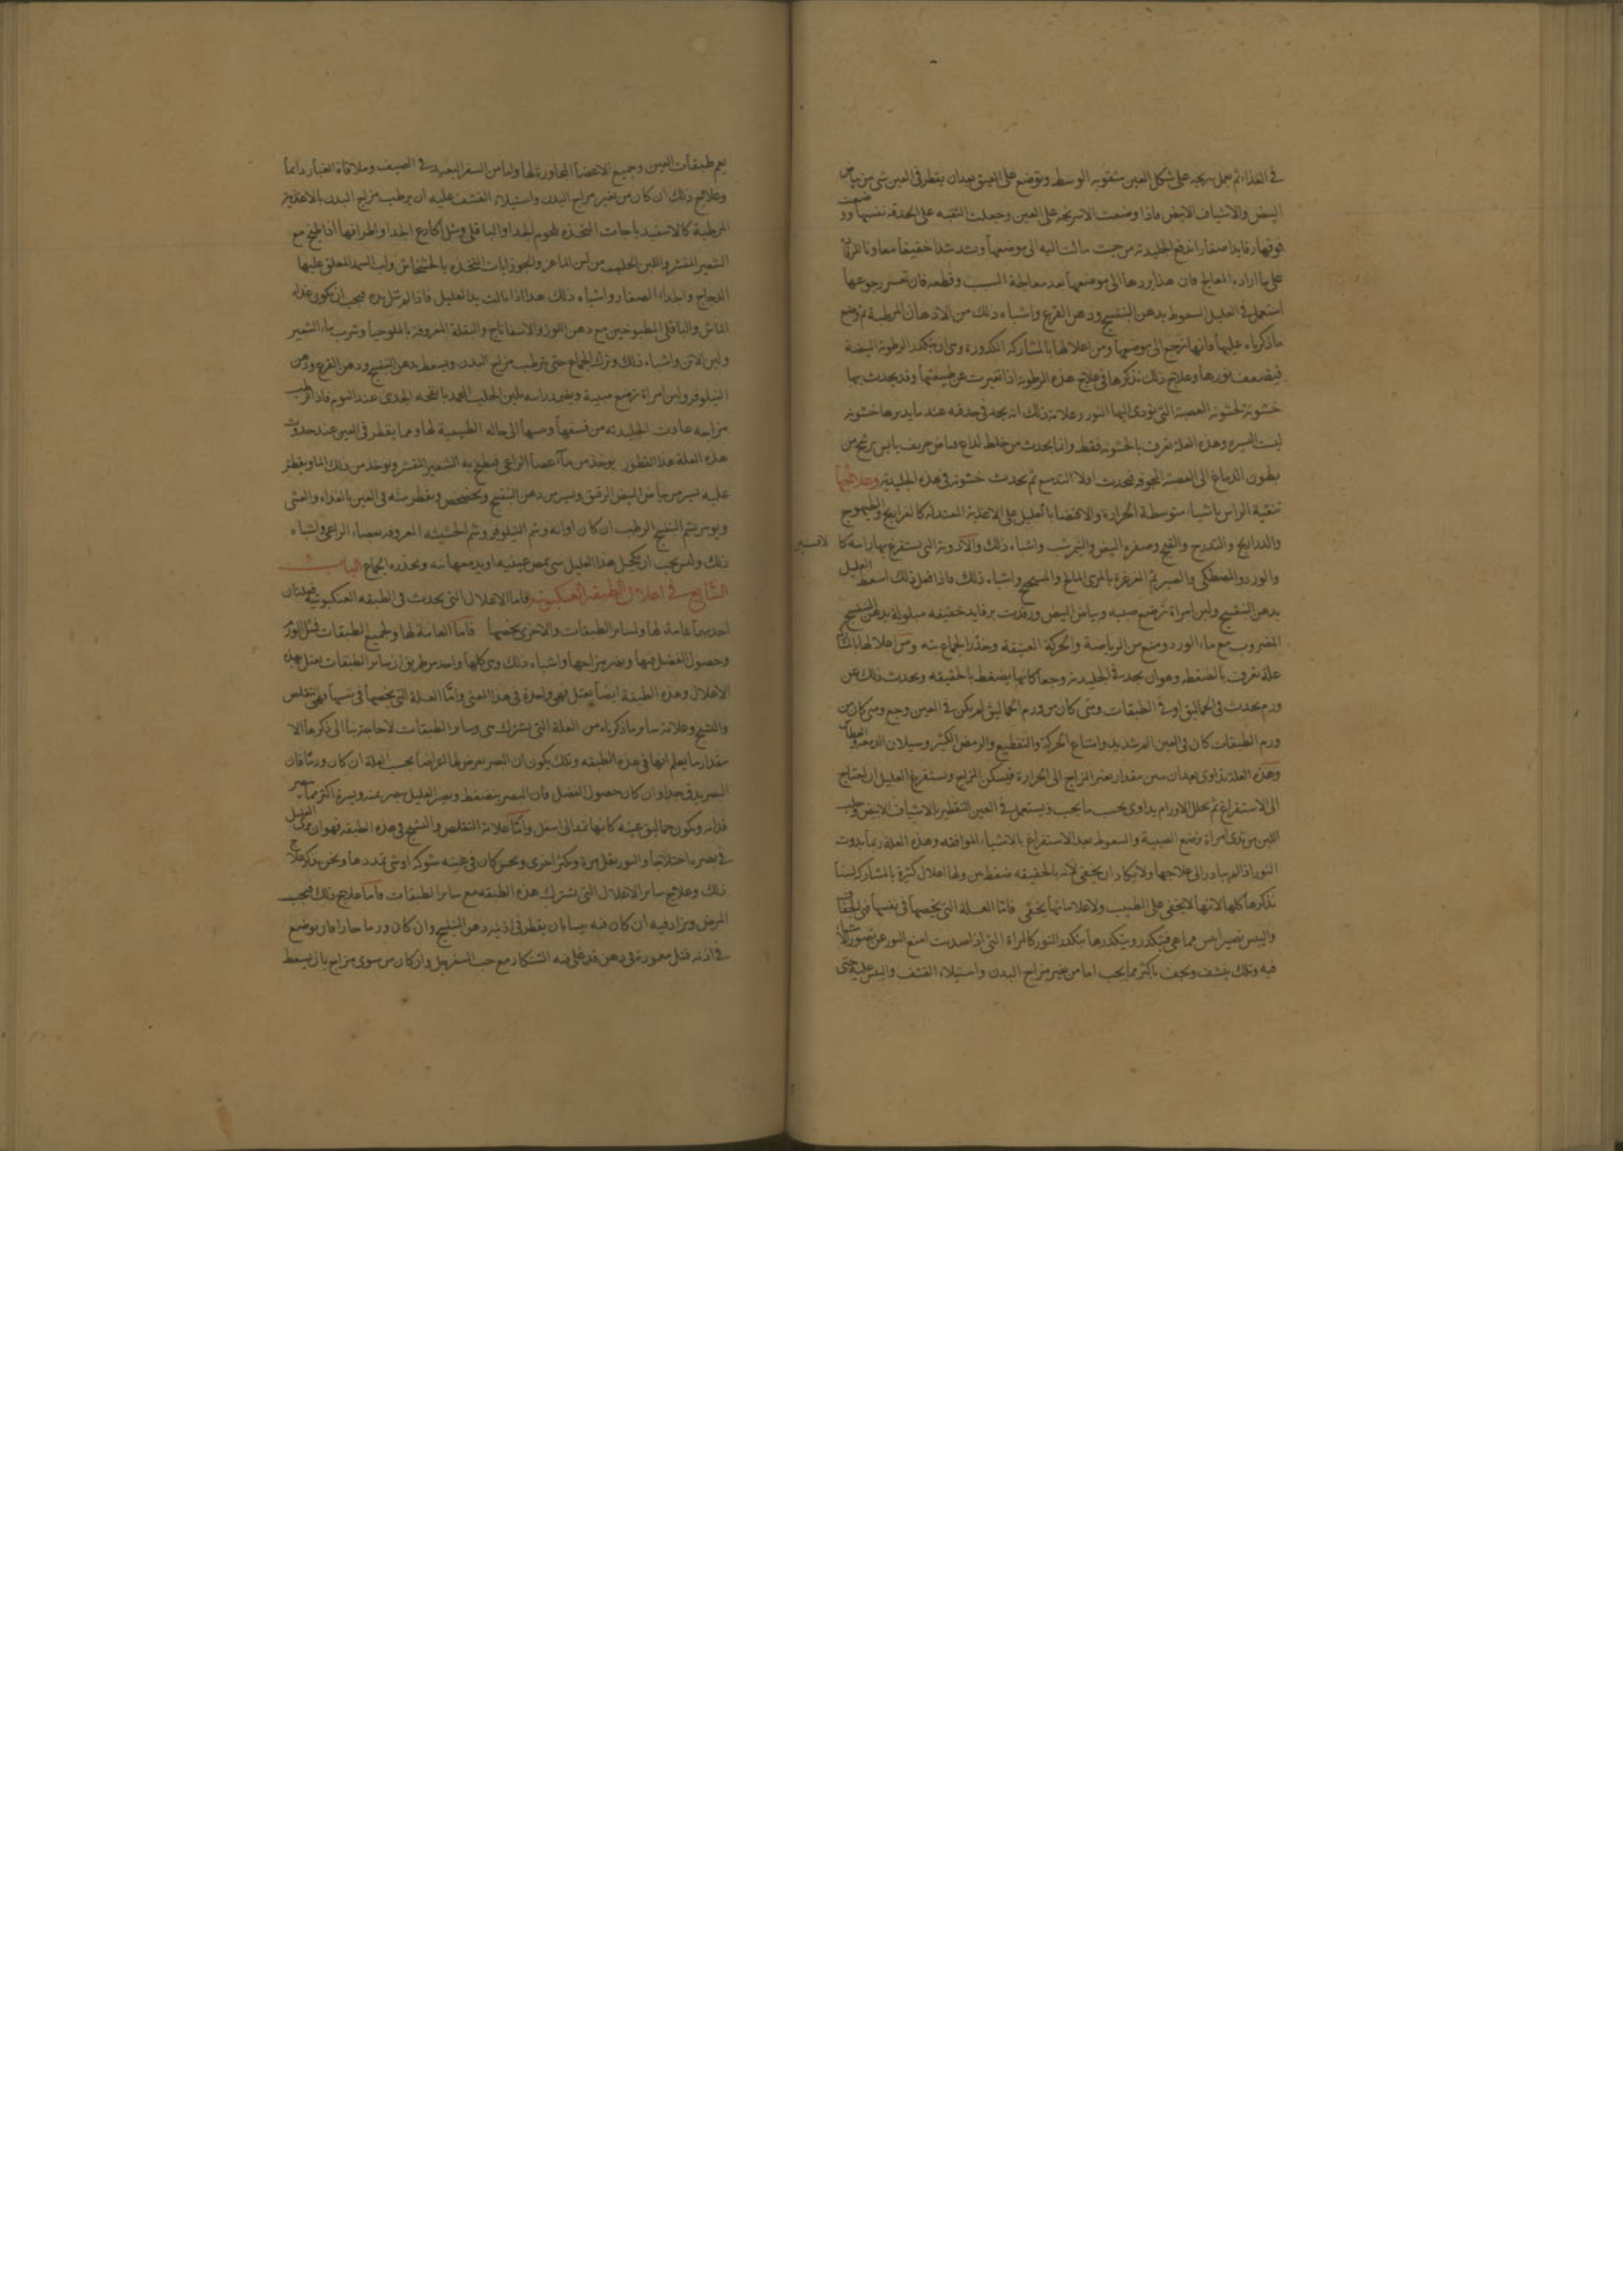 في الغذاء ثم يعمل سريحه على شكل العين مثقوبه الوسط وتوضع على العين بعدان يقطر في العين شى من بياض
البيض والاشياف الابيض فاذا وضعت الاسرنجه على العين وجعلت الثقبه على الحدقه نفسها وضعت
فوقها رفايدا صغارا لتدفع الجليديه من حيث مالت اليه الى موضعها وتشد شدا خفيفا معاونا للرفايد
على ما اراده المعالج فان هذا يردها الى موضعها بعد معالجة السبب وقطعه فان تعسر رجوعها
استعمل في العليل السعوط بدهن البنفسج ودهن القرع واشباه ذلك من الادهان المرطبة ثم توضع
ما ذكرناه عليها فانها ترجع الى موضعها ومن اعلالها بالمشاركه الكدورة وهى ان تتكدر الرطوبة البيضية
فيضعف نورها وعلاج ذلك نذكرها في علاج هذه الرطوبة اذا تغيرت عن طبيعتها وقد يحدث بها
خشونة لخشونة العصبة التى يؤدى اليها النور وعلامة ذلك انه يجد في حدقه عند ما يديرها خشونة
ليست اليسيره وهذه العلة تعرف بالخشونه فقط وانما يحدث من خلط لذاع فياض حريف يابس يرتشح من
بطون الدماغ الى العصبة المجوفه فيحدث اولا التدمع ثم يحدث خشونة في هذه الجليدية وعلاجها
تنقية الراس باشياء متوسطة الحرارة والاقتصار بالعليل على الاغذية المعتدله كالفراريج والطيهوج
والدراريج والتدرج والقبج وصفرة البيض والنيمرشت واشباه ذلك والادوية التى يستفرغ بها راسه كالافسنتين
والورد والمصطكى والصبر ثم الغرغرة بالمرى المالح والميبختج واشباه ذلك فاذا فعل ذلك اسعط العليل
بدهن البنفسج ولبن امراة ترضع صبيه وبياض البيض ورفدت برفايد خفيفه مبلولة بدهن البنفسج
المضروب مع ماء الورد ومنع من الرياضة والحركة العنيفة وحذر الجماع بته ومن اعلالها بالمشاركة
علة تعرف بالضغطه وهوان يجد في الجليدية وجعا كانها يضغط بالحقيقه ويحدث ذلك عن
ورم يحدث في الحماليق او في الطبقات ومتى كان من ورم الحماليق لم يكن في العين وجع ومتى كان من
ورم الطبقات كان في العين الم شديد وامتناع الحركة والتقطيع والرمص الكثير وسيلان الدمعه والعطاس
وهذه العلة تداوى بعد ان يبين مقدار تغير المزاج الى الحرارة فيسكن المزاج ويستفرغ العليل ان احتاج
الى الاستفراغ ثم يحلل الاورام يداوى بحسب ما يجب ويستعمل في العين التقطير بالاشياف الابيض وحلب
اللبن من ثدى امراة ترضع الصبية والسعوط بعد الاستفراغ بالاشياء الموافقه وهذه العلة ربما بددت
النور اذا لم يبادر الى علاجها ولا يكاد ان يخفى لانه بالحقيقه ضغط بين ولها اعلال كثيرة بالمشاركة لسنا
نذكرها كلها لانها لا يخفى على الطبيب ولا علاماتها يخفى فاما العلة التى يخصها في نفسها فهى الجفاف
واليبس يصير ايبس مما هى فيتكدر ويتكدرها يتكدر النور كالمراة التى اذا صديت امتنع النور عن تصور الاشياء
فيه وتلك ينشف ويجف باكثر مما يجب اما من تغير مزاج البدن واستيلاء القشف واليبس عليه حتى
يعم طبقات العين وجميع الاعضا المجاورة لها واما من السفر البعيد في الصيف وملاقاة الغبار دائما
وعلاج ذلك ان كان من تغير مزاج البدن واستيلاء القشف عليه ان يرطب مزاج البدن بالاغذية
المرطبة كالاسفيدباجات المتخذه بلحوم الجدا والباقلى ومثل اكارع الجدا واطرافها اذا طبخ مع
الشعير المقشر واللبن الحليب من لبن الماعز والجوذابات المتخذه بالخشخاش ولب السميد المعلق عليها
الدجاج والجداء الصغار واشباه ذلك هذا اذا مالت يد العليل فاذا لم تنل يده فيجب ان يكون غذاه
الماش والباقلى المطبوخين مع دهن اللوز والاسفاناخ والبقلة المعروفة بالملوخيا وشرب ماء الشعير
ولبن الاتن واشباه ذلك وترك الجماع حتى يترطب مزاج البدن ويسعط بدهن البنفسج ودهن القرع ودهن
النيلوفر ولبن امراة ترضع صبية ويغمر راسه بلبن الحليب المجمد بانفحه الجدى عند النوم فاذا رطب
مزاجه عادت الجليديه من قشفها ويبسها الى حاله الطبيعية لها ومما يقطر في العين عند حدوث
هذه العلة هذا القطور يوخذ من ماء عصا الراعى فيطبخ به الشعير المقشر ويوخذ من ذلك الماء ويقطر
عليه يسير من بياض البيض الرقيق ويسير من دهن البنفسج ويخضخض ويقطر منه في العين بالغداه والعشى
ويومر بشم البنفسج الرطب ان كان اوانه وشم النيلوفر وشم الحشيشه المعروفه بعصاء الراعى واشباه
ذلك وليس يجب ان يكتحل هذا العليل بشى يمض عينيه او يدمعها بته ويحذره الجماع الباب
السابع في اعلال الطبقه العنكبوتيه فاما الاعلال التى يحدث في الطبقه العنكبوتية فعلتان
احديهما عامة لها ولساير الطبقات والاخرى يخصها فاما العامة لها ولجميع الطبقات فمثل الورم
وحصول الفضل فيها وتغير مزاجها واشباه ذلك وهى كلها واحد من طريق ان ساير الطبقات يعتل بهذه
الاعلال وهذه الطبقة ايضا يعتل فهى واحدة في هذا المعنى واما العلة التى يخصها في نفسها فهى التقلص
والتشنج وعلامة ساير ما ذكرناه من العلة التى يشترك هى وساير الطبقات لا حاجة بنا الى ذكرها الا
مقدار ما يعلم انها في هذه الطبقه وتلك يكون ان البصر يعرض لها اعراضا بحسب العلة ان كان ورما فان
البصر يدق جدا وان كان حصول الفضل فان البصر ينضغط ويصير العليل يبصر يمنة ويسرة اكثر مما يبصر
قدامه ويكون حماليق عينه كانها تمد الى اسفل واما علامة التقلص والتشنج في هذه الطبقه فهو ان يرى العليل
في بصره اختلاجا والنور يقل مرة ويكثر اخرى ويحس كان في عينه شوكه او شى تمددها ونحن نذكر علاج
ذلك وعلاج ساير الاعلال التى تشترك هذه الطبقه مع ساير الطبقات فاما علاج ذلك فبحسب
المرض ويزاد فيه ان كان فيه يبسا بان يقطر في اذنيه دهن البنفسج وان كان ورما حارا فان يوضع
في اذنه فتل مغمورة في دهن قد غلى فيه الشنكار مع حب السفرجل وان كان من سوى مزاج بان يسعط